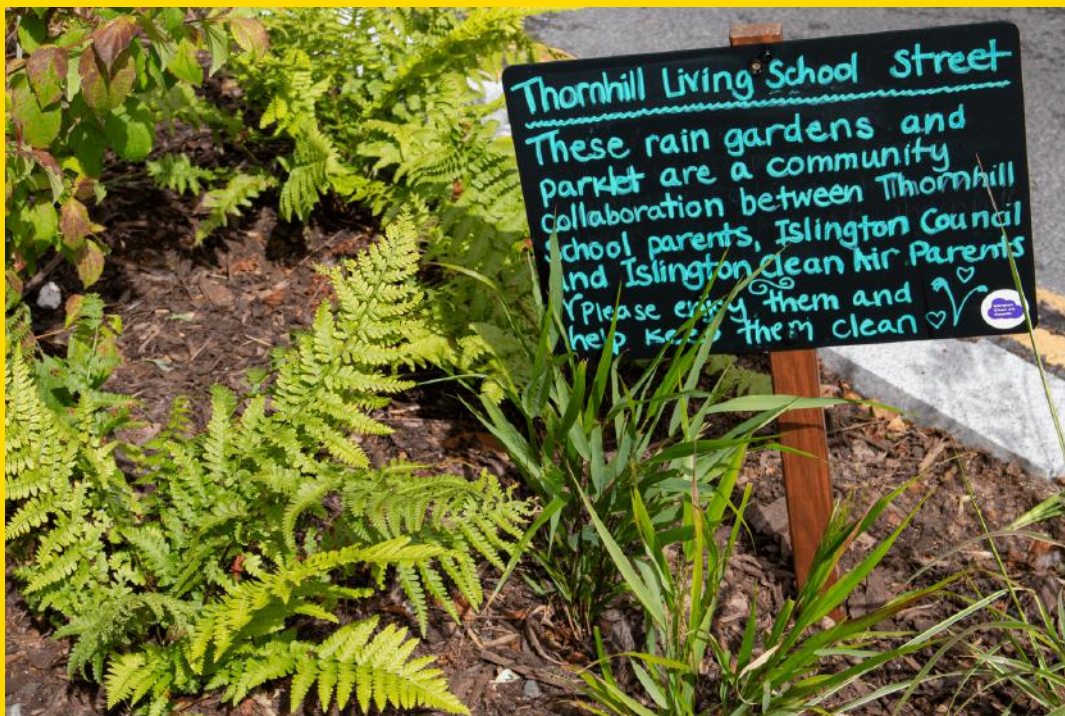 Thornhill Living School Street
These rain gardens and
parklet are a community
collaboration between Thornhill
School parents, Islington Council
and Islington Clean Air Parents
Please enjoy them and
help keep them clean
Islington
Clean Air
Parents